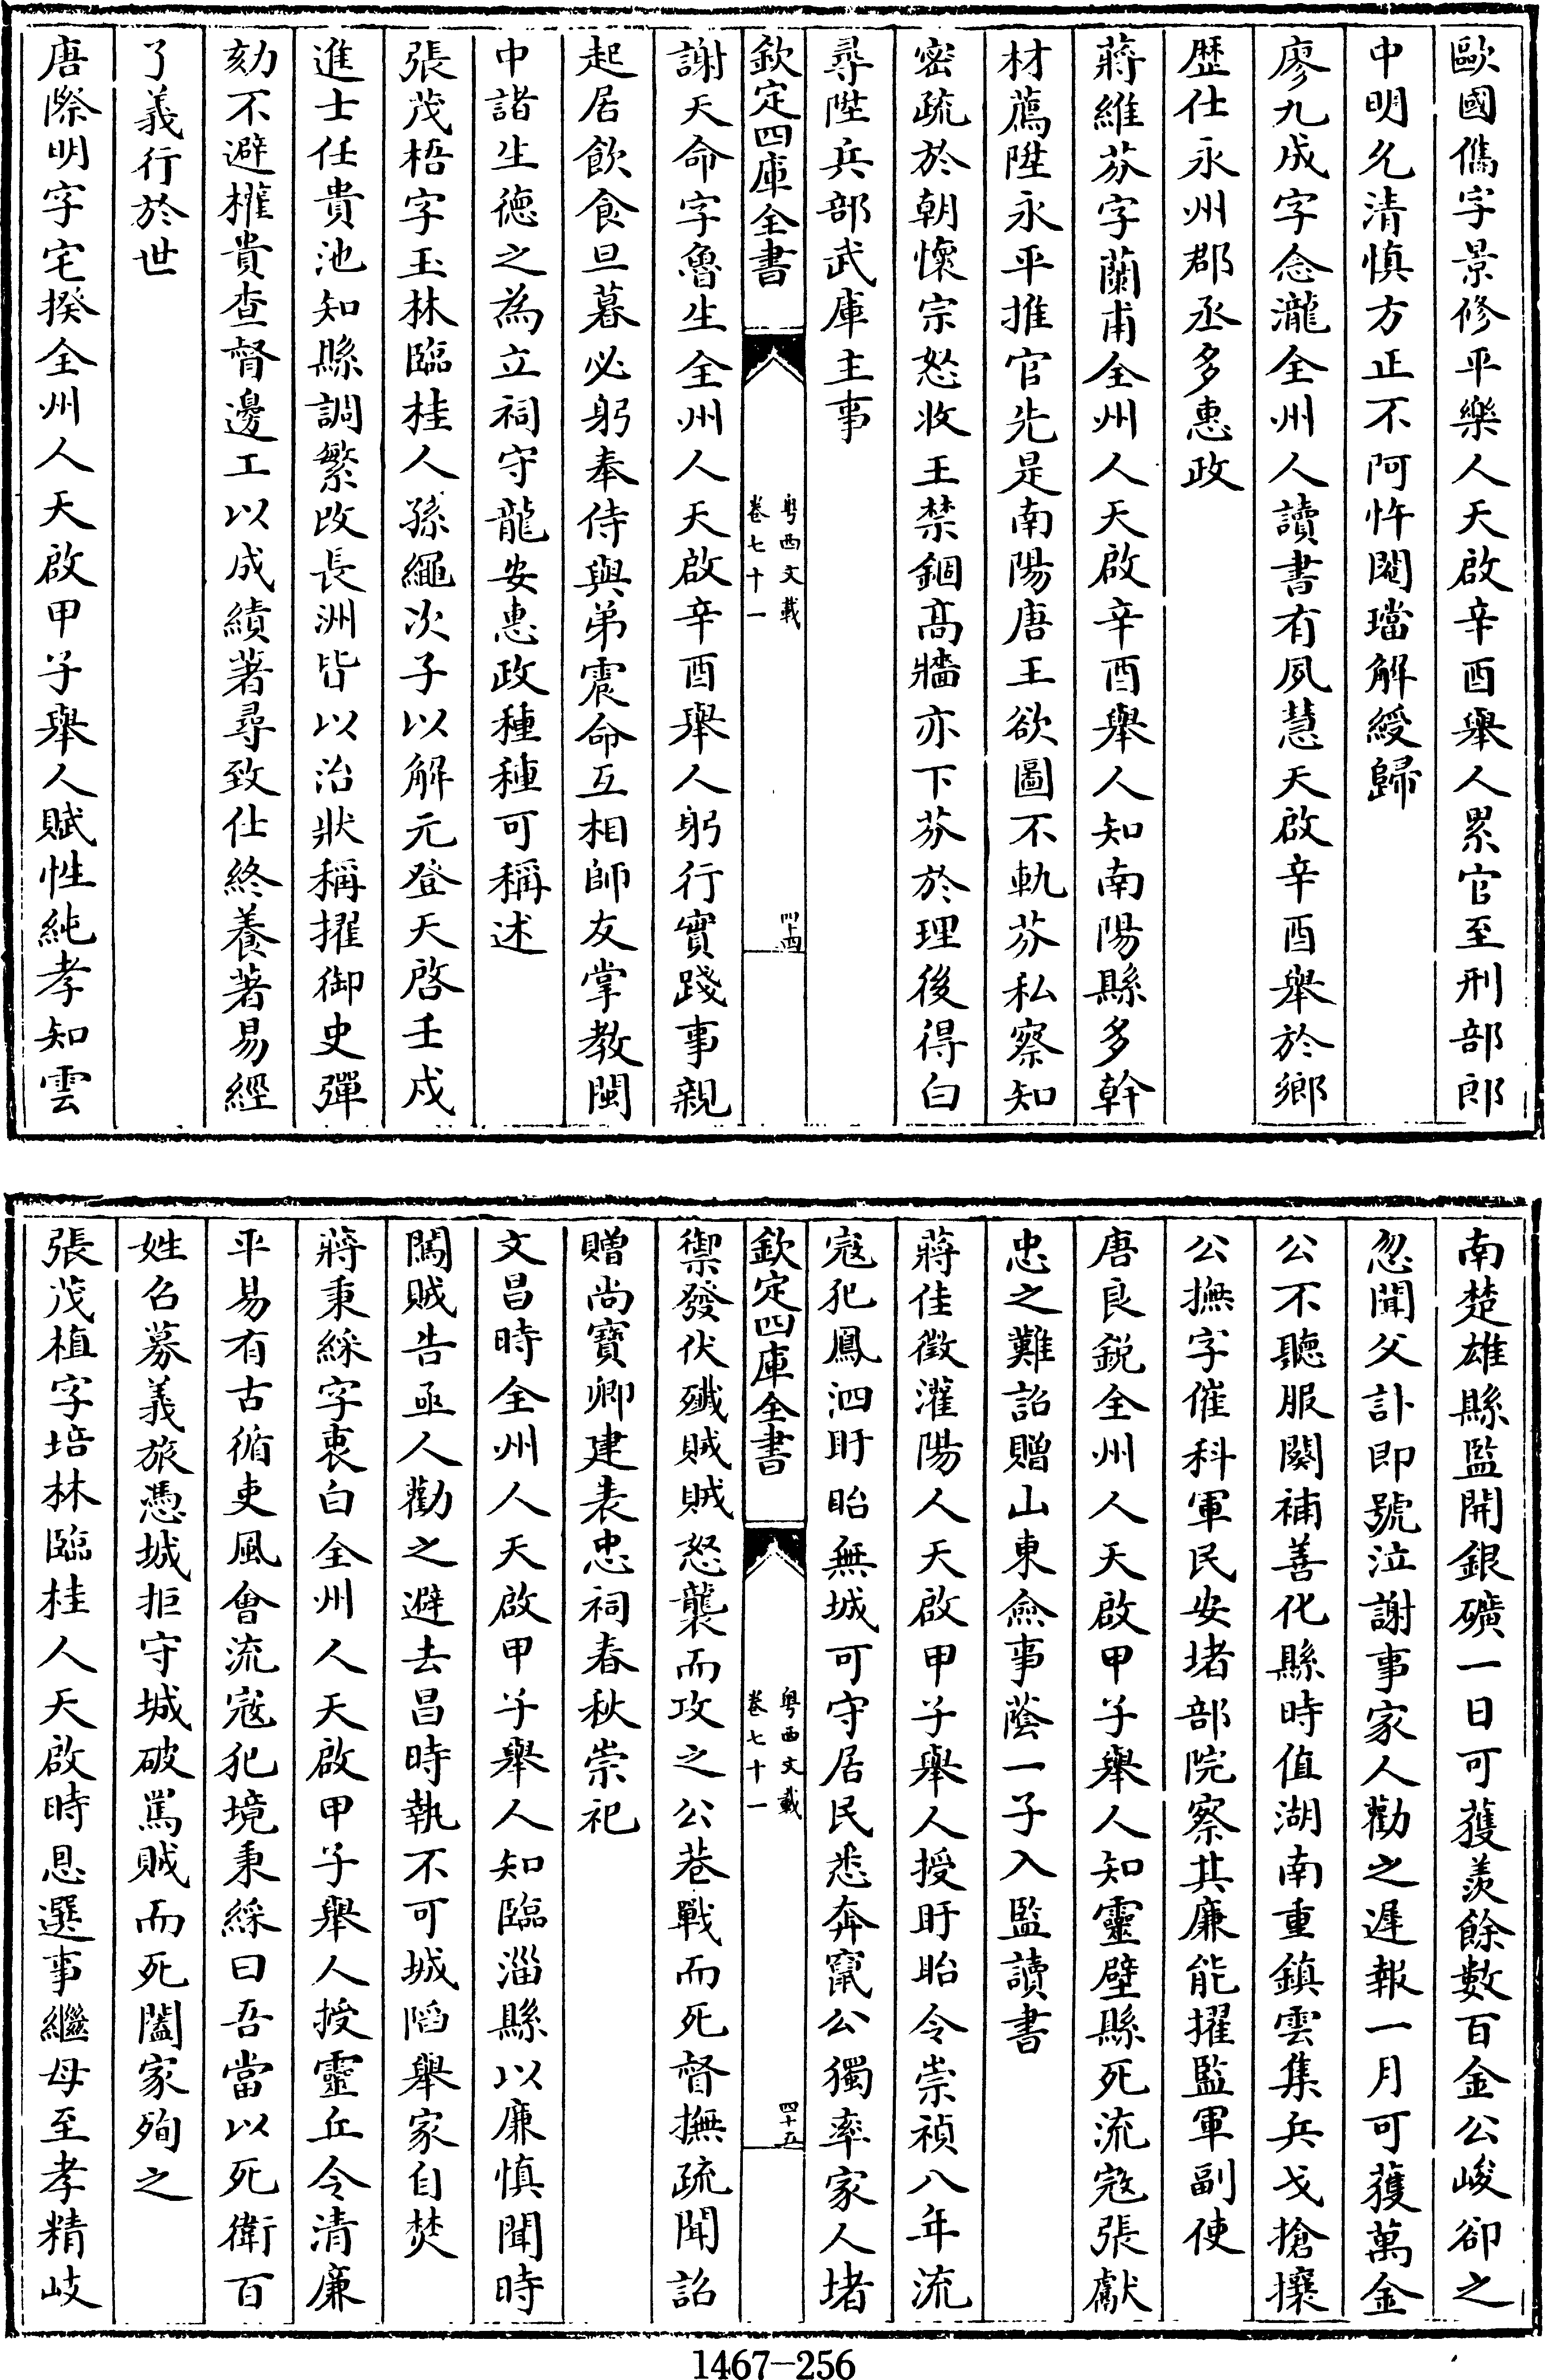 歐國儁字景修平樂人天啟辛酉舉人累官至刑部郎
中明允清慎方正不阿忤閹璫解綬歸
廖九成字念瀧全州人讀書有夙慧天啟辛酉舉於鄉
歷仕永州郡丞多惠政
蔣維芬字蘭甫全州人天啟辛酉舉人知南陽縣多幹
材薦陞永平推官先是南陽唐王欲圖不軌芬私察知
密疏於朝懷宗怒收王禁錮髙牆亦下芬於理後得白
尋陞兵部武庫主事
欽定四庫全書
粤西文載
卷七十一
四十四
謝天命字魯生全州人天啟辛酉舉人躬行實踐事親
起居飲食旦暮必躬奉侍與弟震命互相師友掌教閩
中諸生德之為立祠守龍安惠政種種可稱述
張茂梧字玉林臨桂人孫繩次子以解元登天啓壬戌
進士任貴池知縣調繁改長洲皆以治狀稱擢御史彈
劾不避權貴查督邊工以成績著尋致仕終養著易經
了義行於世
唐際明字宅揆全州人天啟甲子舉人賦性純孝知雲
南楚雄縣監開銀礦一日可獲羨餘數百金公峻卻之
忽聞父訃即號泣謝事家人勸之遲報一月可獲萬金
公不聽服闋補善化縣時值湖南重鎮雲集兵戈搶攘
公撫字催科軍民安堵部院察其廉能擢監軍副使
唐良鋭全州人天啟甲子舉人知靈壁縣死流寇張獻
忠之難詔贈山東僉事蔭一子入監讀書
蔣佳徵灌陽人天啟甲子舉人授盱眙令崇禎八年流
寇犯鳳泗盱眙無城可守居民悉奔竄公獨率家人堵
欽定四庫全書
粤西文載
卷七十一
四十五
禦發伏殲賊賊怒襲而攻之公巷戰而死督撫疏聞詔
贈尚寶卿建表忠祠春秋崇祀
文昌時全州人天啟甲子舉人知臨淄縣以廉慎聞時
闖賊告亟人勸之避去昌時執不可城陷舉家自焚
蔣秉綵字衷白全州人天啟甲子舉人授靈丘令清廉
平易有古循吏風會流寇犯境秉綵曰吾當以死衛百
姓召募義旅憑城拒守城破罵賊而死闔家殉之
張茂植字培林臨桂人天啟時恩選事繼母至孝精岐
1467-256